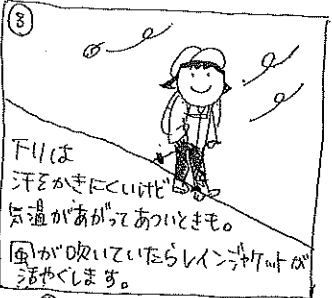 ⑧
下りは
汗をかきにくいけど
気温があがってあついときも。
風が吹いていたらレインジャケットが
活やくします。